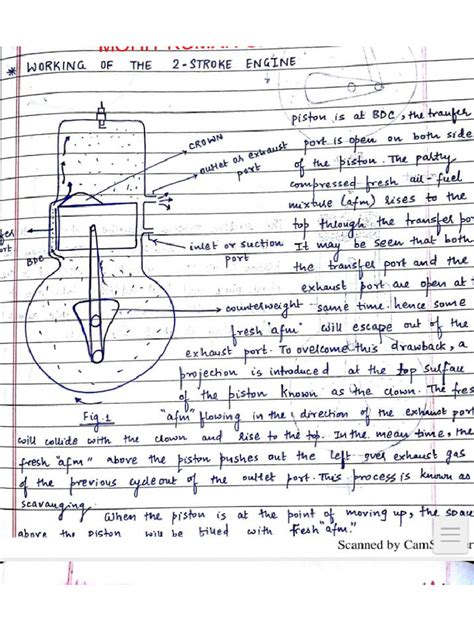 * WORKING OF THE 2-STROKE ENGINE
piston is at BDC, the tranfer
port is open on both side
of the piston. The paltly
compressed fresh air-fuel
mixture (afm) rises to the
top through the transfer po
It may be seen that both
the transfer port and the
exhaust port are open at
same time. hence some
fresh "afm" will escape out of the
exhaust port. To overcome this drawback, a
projection is introduced at the top surface
of the piston known as the clown. The fres
"afm" flowing in the direction of the exhaust port
will collide with the clown and rise to the top. In the mean time, the
fresh "afm" above the piston pushes out the left over exhaust gas
of the previous cycle out of the outlet port. This process is known as
scavanging.
When the piston is at the point of moving up, the spac
above the piston will be filled with fresh "afm."
CROWN
outlet or exhaust
port
inlet or suction
port
BDC
counterweight
Fig.1
Scanned by CamS